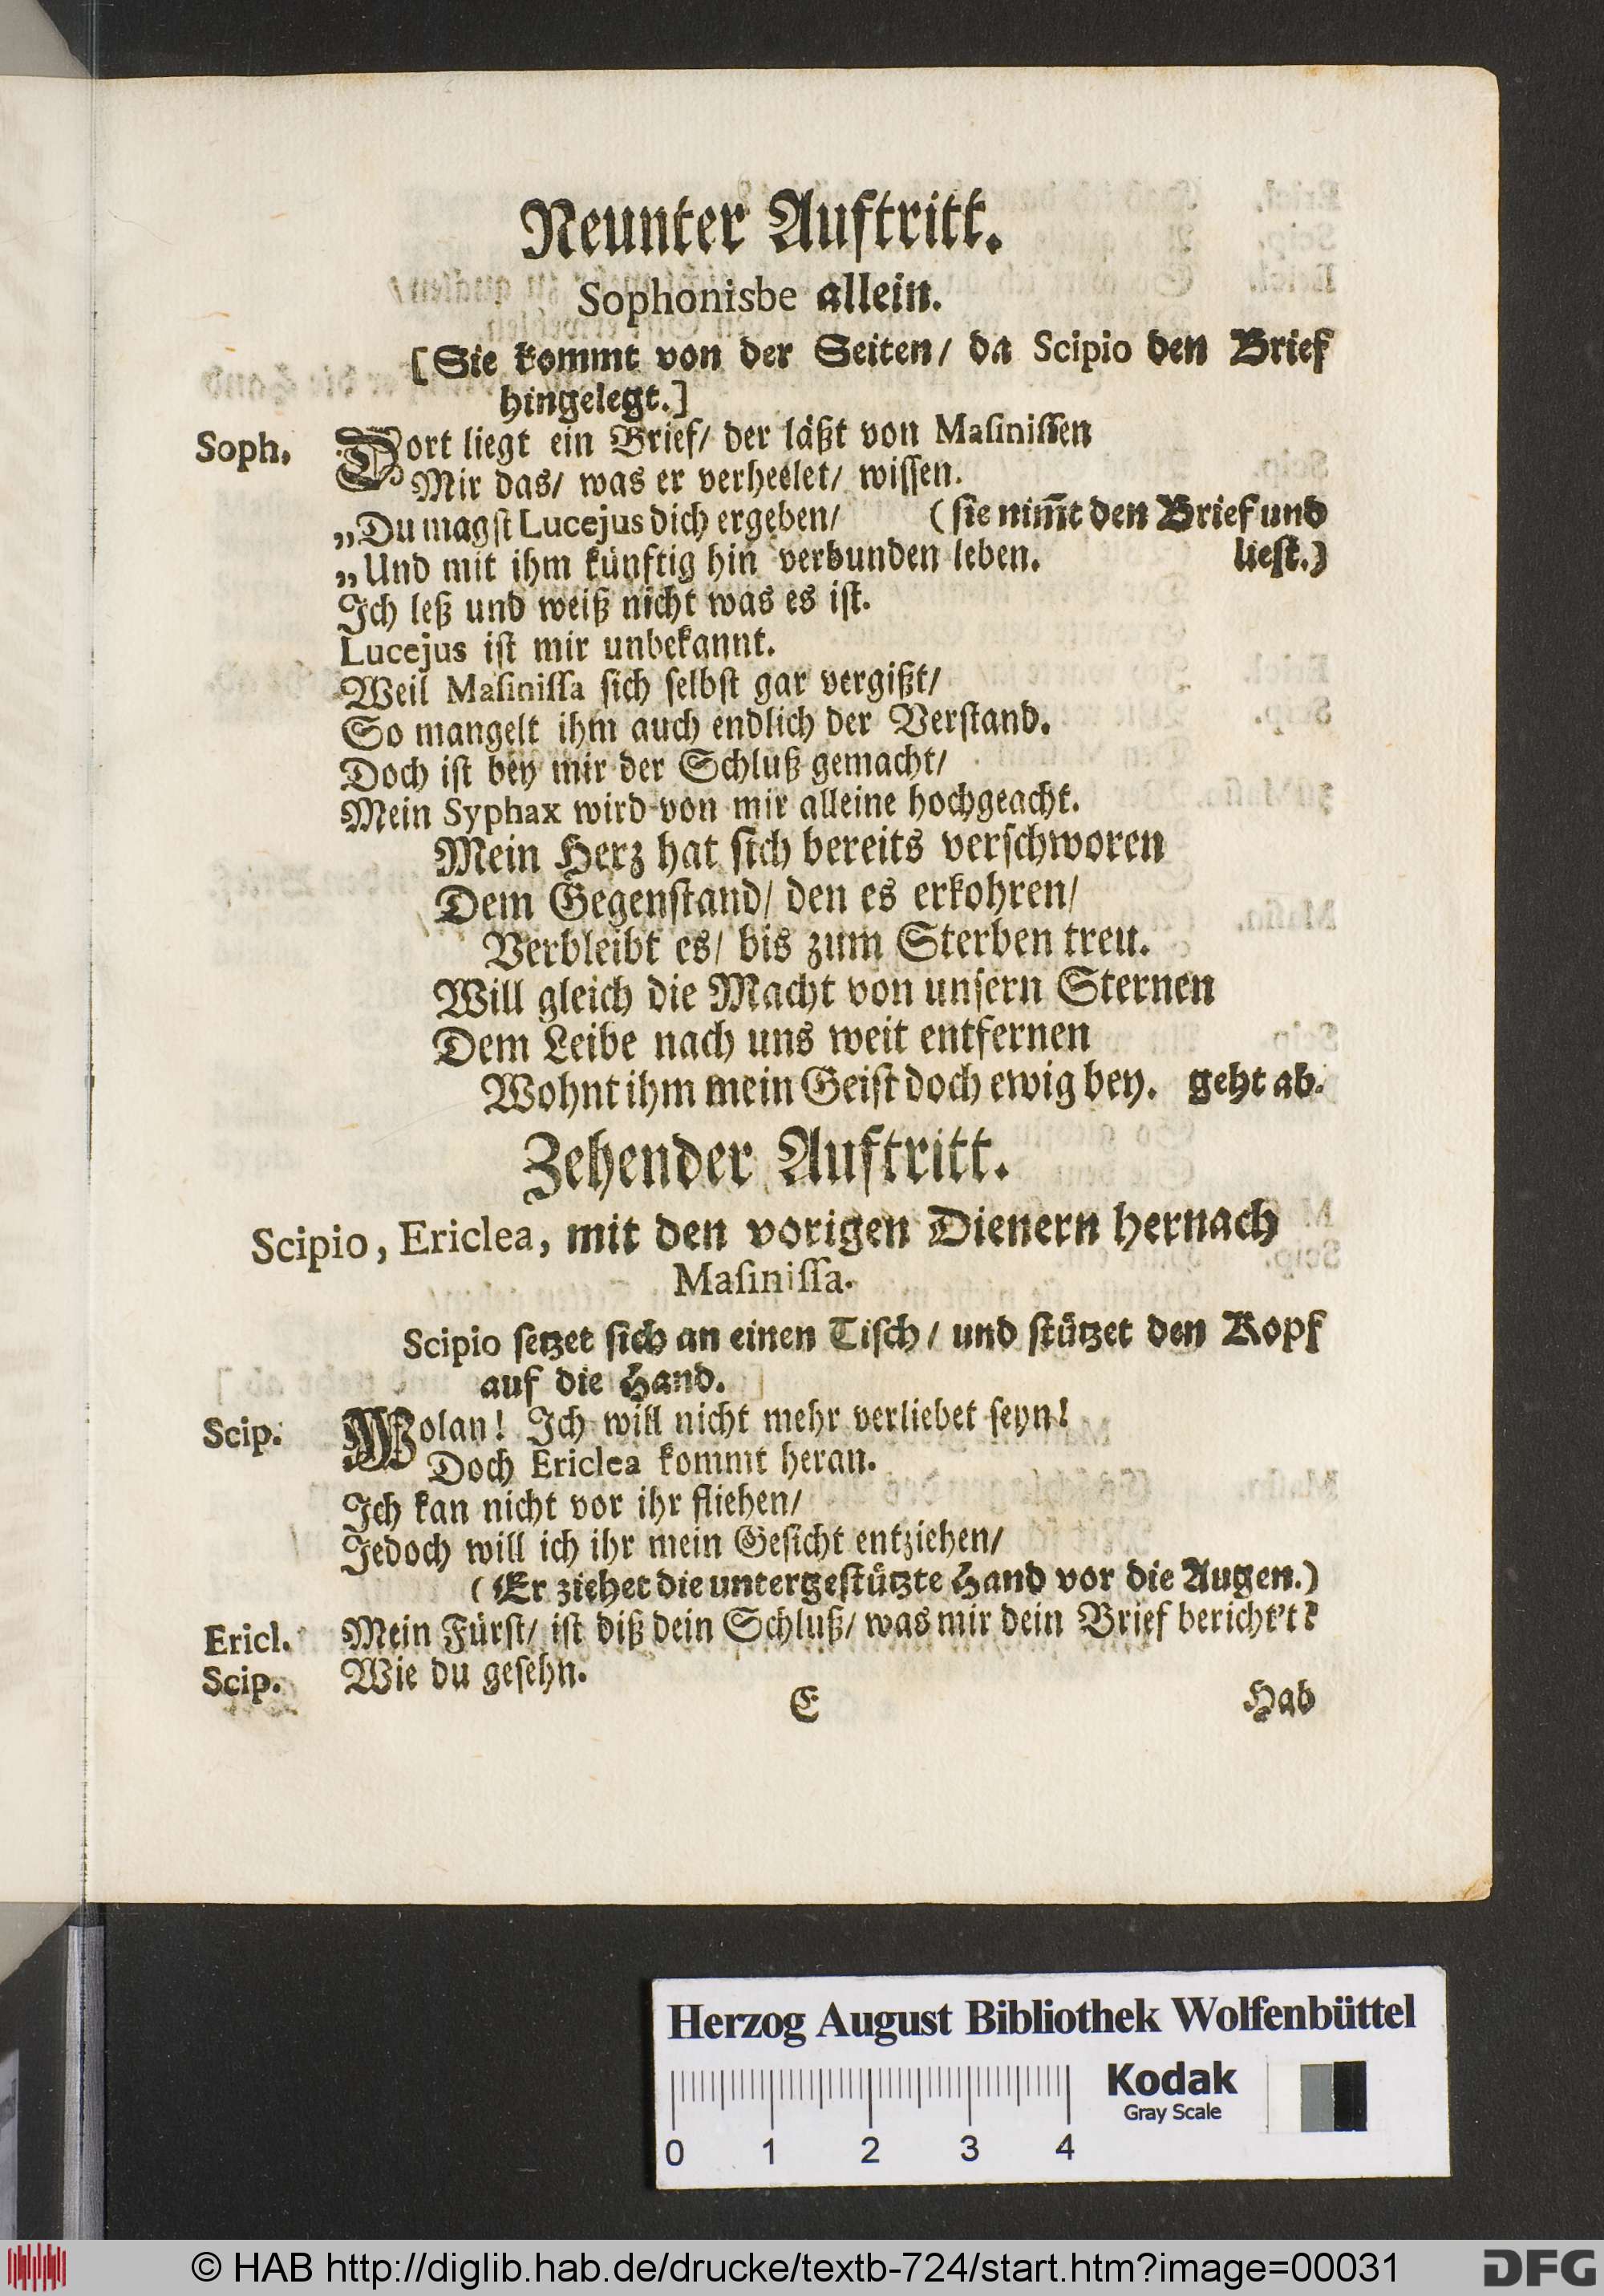 Neunter Auftritt.
Sophonisbe allein.
[Sie kommt von der Seiten/ da Scipio den Brief
hingelegt.]
Soph. Dort liegt ein Brief/ der läßt von Maſiniſſen
Mir das/ was er verheelet/ wiſſen.
„Du magſt Lucejus dich ergeben/ (ſie nim̄t den Brief und
„Und mit ihm künftig hin verbunden leben. lieſt.)
Ich leß und weiß nicht was es iſt.
Lucejus iſt mir unbekannt.
Weil Maſiniſſa ſich ſelbſt gar vergißt/
So mangelt ihm auch endlich der Verſtand.
Doch iſt bey mir der Schluß gemacht/
Mein Syphax wird von mir alleine hochgeacht.
Mein Herz hat ſich bereits verſchworen
Dem Gegenſtand/ den es erkohren/
Verbleibt es/ bis zum Sterben treu.
Will gleich die Macht von unſern Sternen
Dem Leibe nach uns weit entfernen
Wohnt ihm mein Geiſt doch ewig bey. geht ab.
Zehender Auftritt.
Scipio, Ericlea, mit den vorigen Dienern hernach
Maſiniſſa.
Scipio ſetzet ſich an einen Tiſch/ und ſtützet den Kopf
auf die Hand.
Scip. Wolan! Ich will nicht mehr verliebet ſeyn!
Doch Ericlea kommt heran.
Ich kan nicht vor ihr fliehen/
Jedoch will ich ihr mein Geſicht entziehen/
(Er ziehet die untergeſtützte Hand vor die Augen.)
Ericl. Mein Fürſt/ iſt diß dein Schluß/ was mir dein Brief bericht't?
Scip. Wie du geſehn.
E Hab
Herzog August Bibliothek Wolfenbüttel
Kodak
Gray Scale
0 1 2 3 4
© HAB http://diglib.hab.de/drucke/textb-724/start.htm?image=00031
DFG